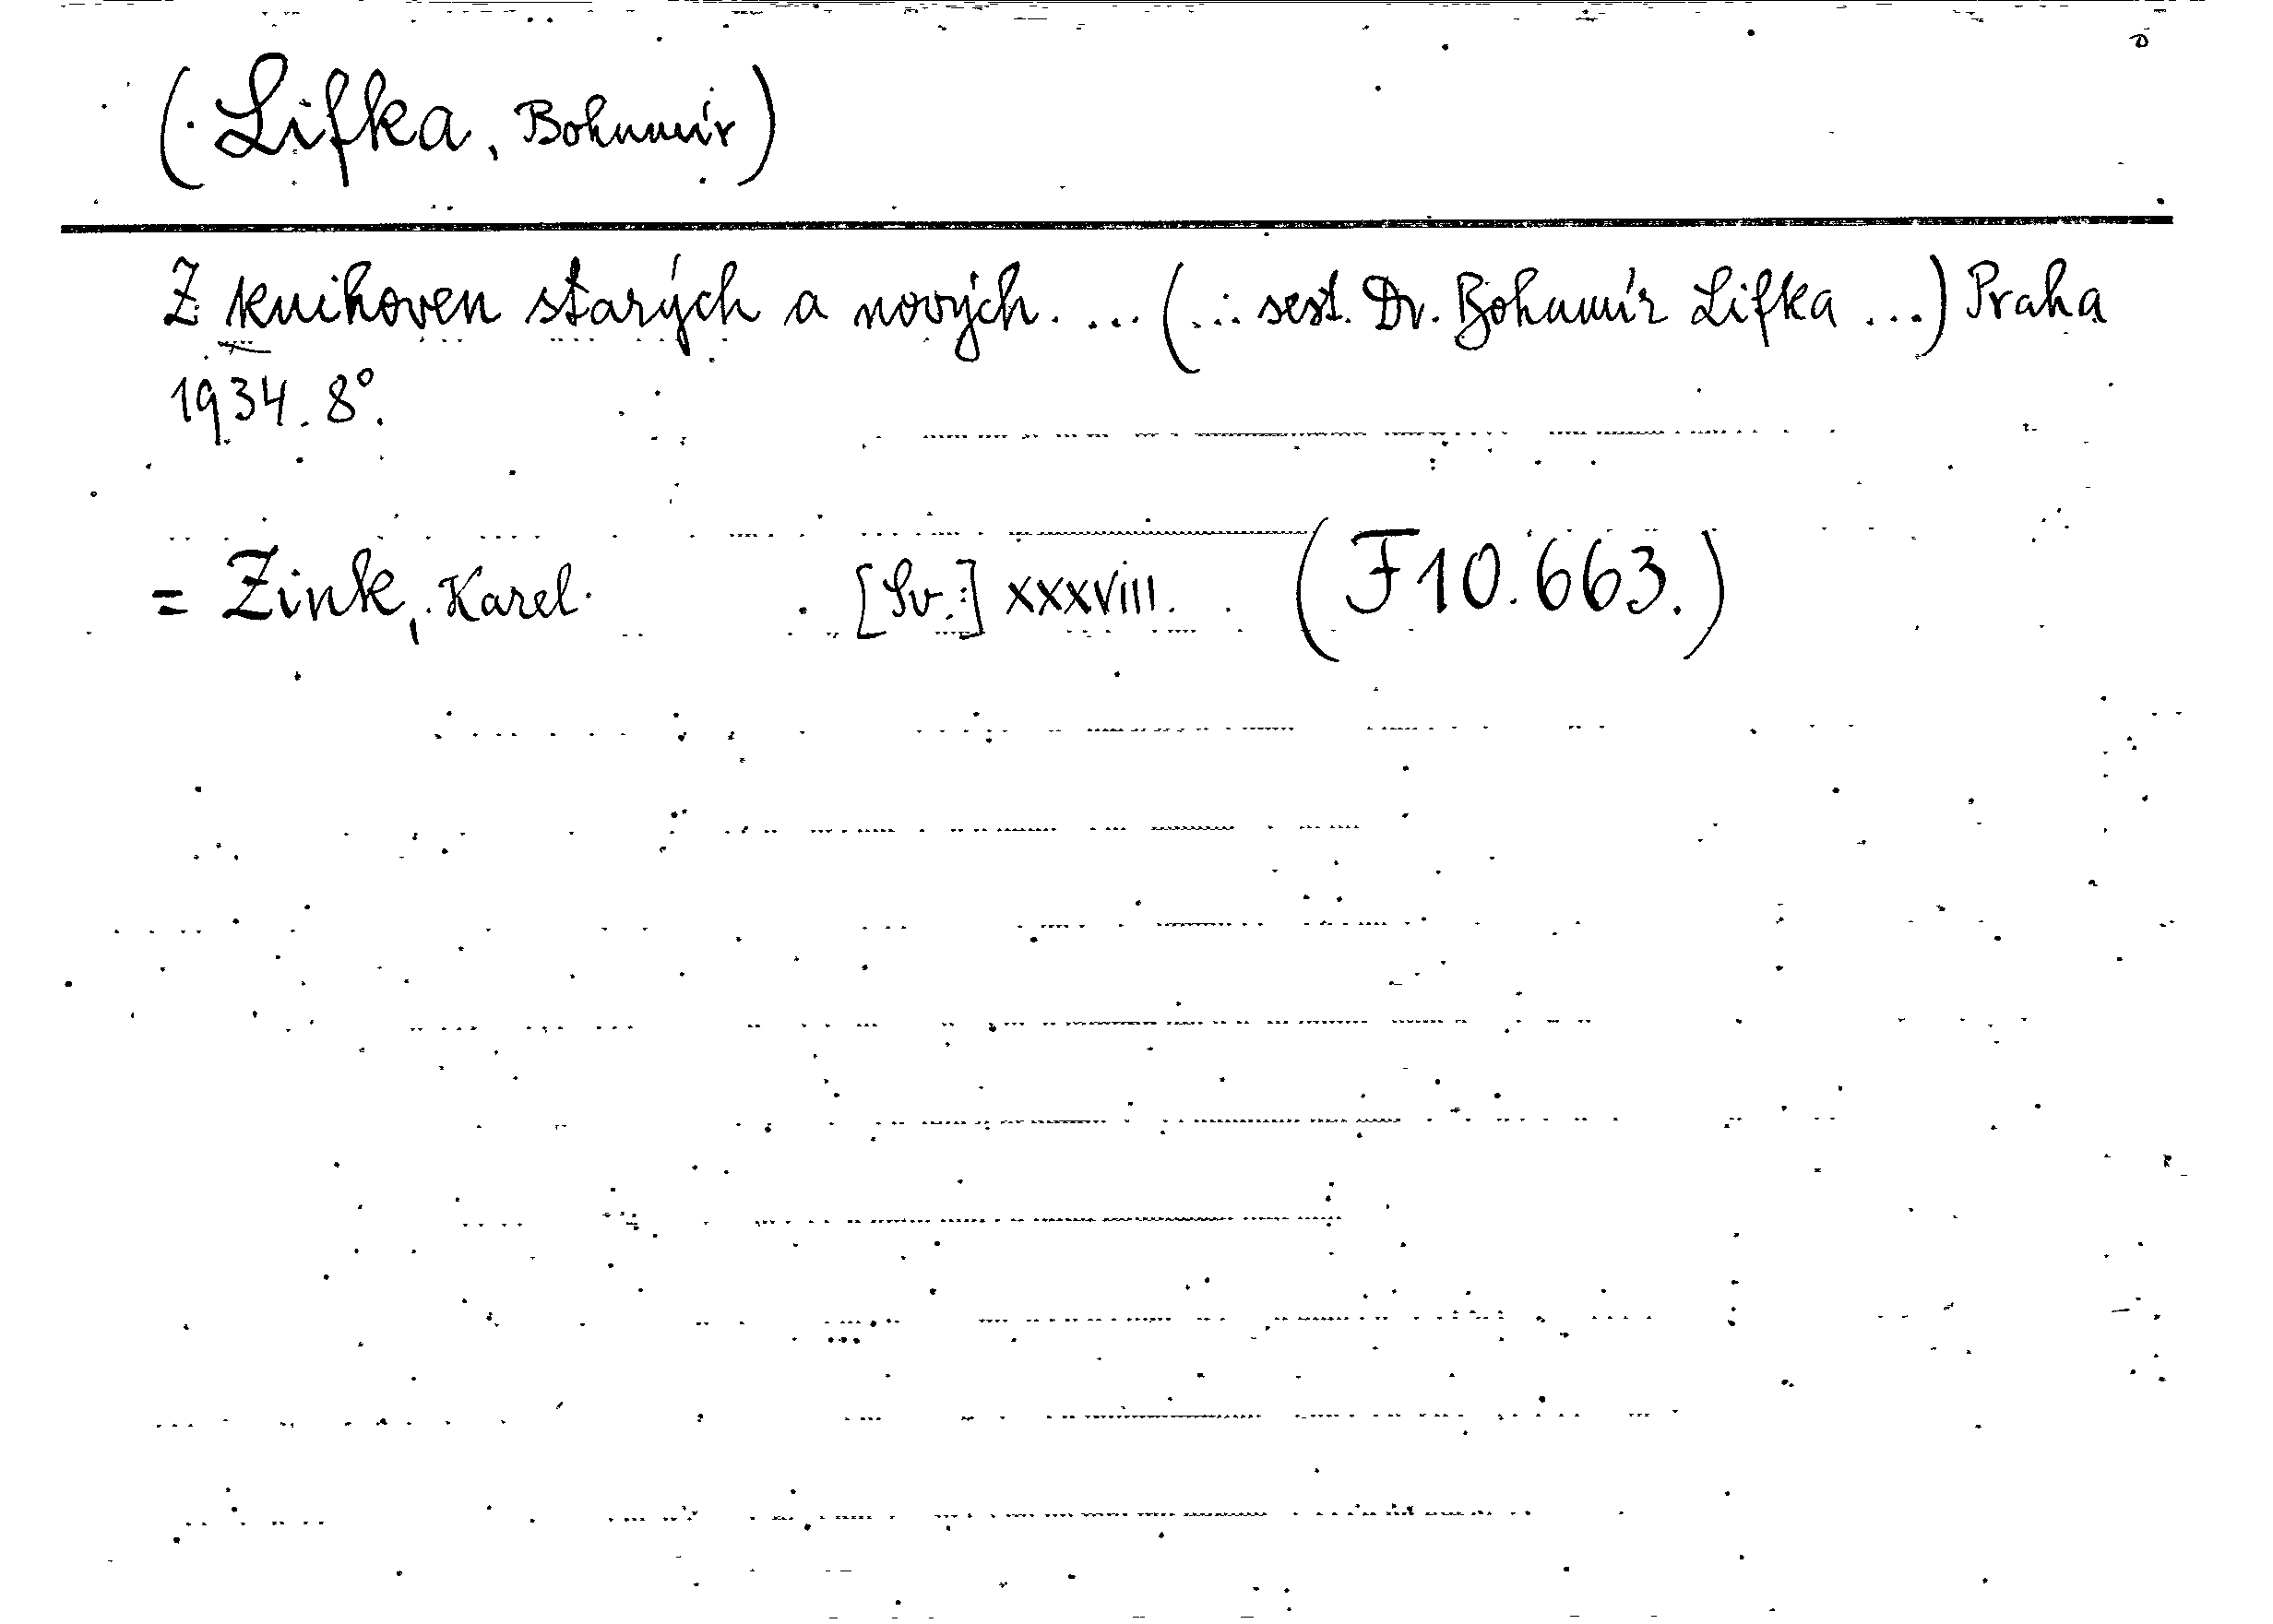 (Lifka, Bohumír)
Z knihoven starých a nových. ... (... sest. Dr. Bohumír Lifka ...) Praha
1934. 8°.
= Zink, Karel. [Sv.:] XXXVIII. (F10.663.)